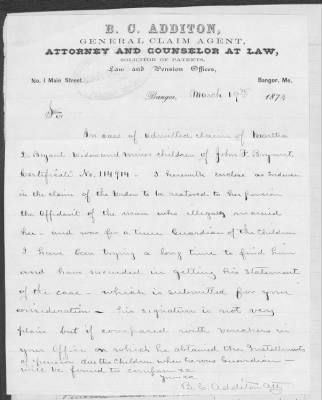 B. C. ADDITON,
GENERAL CLAIM AGENT,
ATTORNEY AND COUNSELOR AT LAW,
SOLICITOR OF PATENTS,
Law and Pension Offices,
No. 1 Main Street. Bangor, Me.
Bangor, March 19th 1874
Sir
In case of admitted claim of Martha
E Bryant Widow and minor children of John F. Bryant
Certificate No. 114914. I herewith enclose as Evidence
in the claim of the Widow to be restored to her pension
the Affidavit of the man who illegally married
her - and was for a time Guardian of the Children
I have been trying a long time to find him
and have succeeded in getting his statement
of the case - which is submitted for your
consideration - His signature is not very
plain but if compared with vouchers in
your Office on which he obtained the Installments
of pension due the Children when he was Guardian -
will be found to compare &c
Yours &c
B. C. Additon Atty